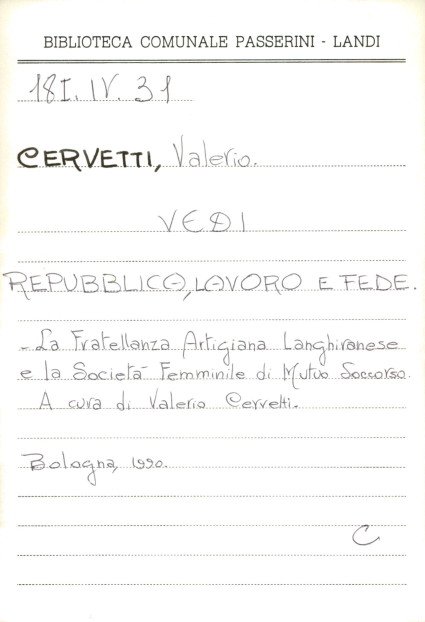 BIBLIOTECA COMUNALE PASSERINI - LANDI
18I. IV. 31
CERVETTI, Valerio.
VEDI
REPUBBLICA, LAVORO E FEDE.
- La Fratellanza Artigiana Langhiranese
e la Società Femminile di Mutuo Soccorso.
A cura di Valerio Cervetti.
Bologna, 1990.
C